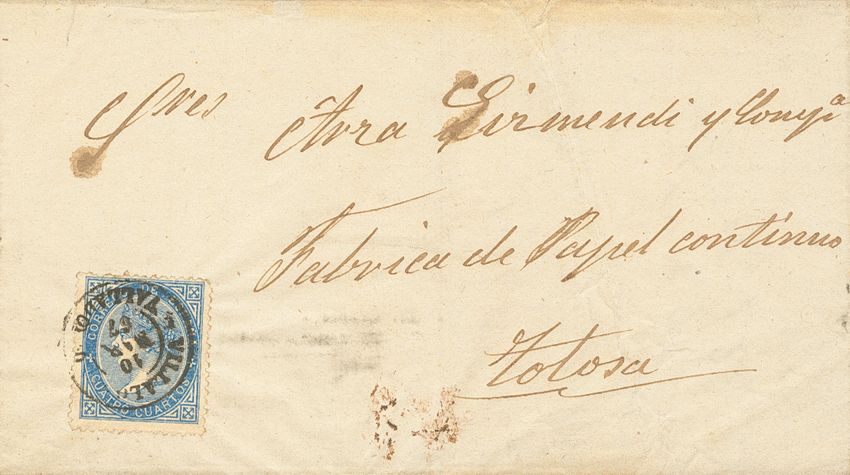 Sres Aora Sirmendi y Compª
Fabrica de Papel continuo
Tolosa
CORREOS DE
CUATRO CUARTOS
10
MAR
67